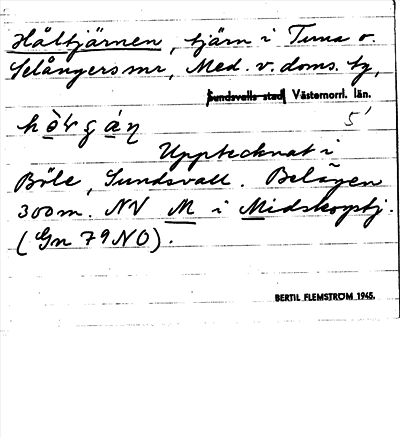 Håltjärnen, tjärn i Tuna o.
Selångers snr, Med. v. doms. tg,
Sundsvalls stad, Västernorrl. län.
5'
Upptecknat i
Böle, Sundsvall. Belägen
300 m. NV M i Midskogstj.
(Gn 79 NO).
BERTIL FLEMSTRÖM 1945.